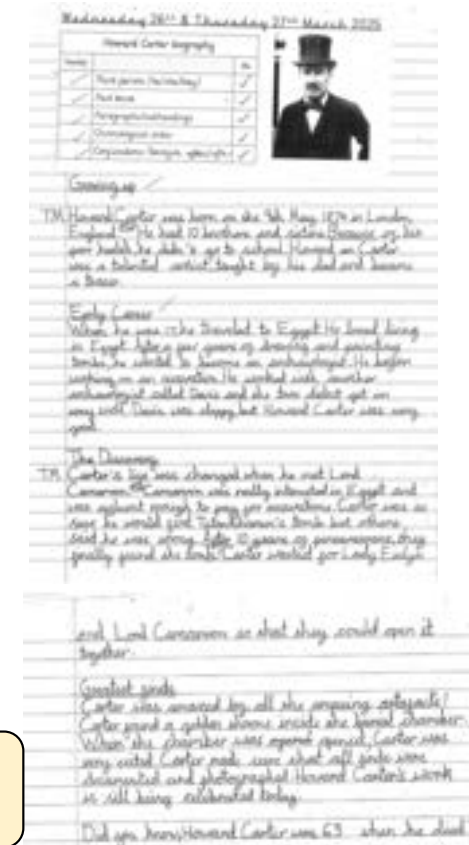 Wednesday 26th & Thursday 27th March 2025
Howard Carter biography
Third person (he/she/they)
Past tense
Paragraphs/subheadings
Chronological order
Conjunctions
Growing up
T.M Howard Carter was born on the 9th May 1874 in London,
England He had 10 brothers and sisters Because of his
poor health he didn't go to school Howard Carter
was a talented artist taught by his dad and became
a
Early Career
When he was he traveled to Egypt He loved living
in Egypt After a years of drawing and painting
tombs, he wanted to become an archaeologist. He began
working on an excavation. He worked with another
archaeologist called Davis and the two didnt get on
very well. Davis was sloppy but Howard Carter was very
good.
The Discovery
T.M Carter's life was changed when he met Lord
Carnarvon Carnarvon was really interested in Egypt and
was enough to pay for excavations Carter was
he would find Tutankhamun's tomb but others
said he was wrong After 10 years of they
finally found the tomb Carter waited for Lady Evelyn
and Lord Carnarvon so that they could open it
together.
Greatest finds
Carter was amazed by all the amazing
Carter found a golden inside the burial chamber.
When the chamber was opened, Carter was
very Carter made sure that all finds were
documented and photographed Howard Carter's work
is still being celebrated today
Did you know, Howard Carter was 63 when he died